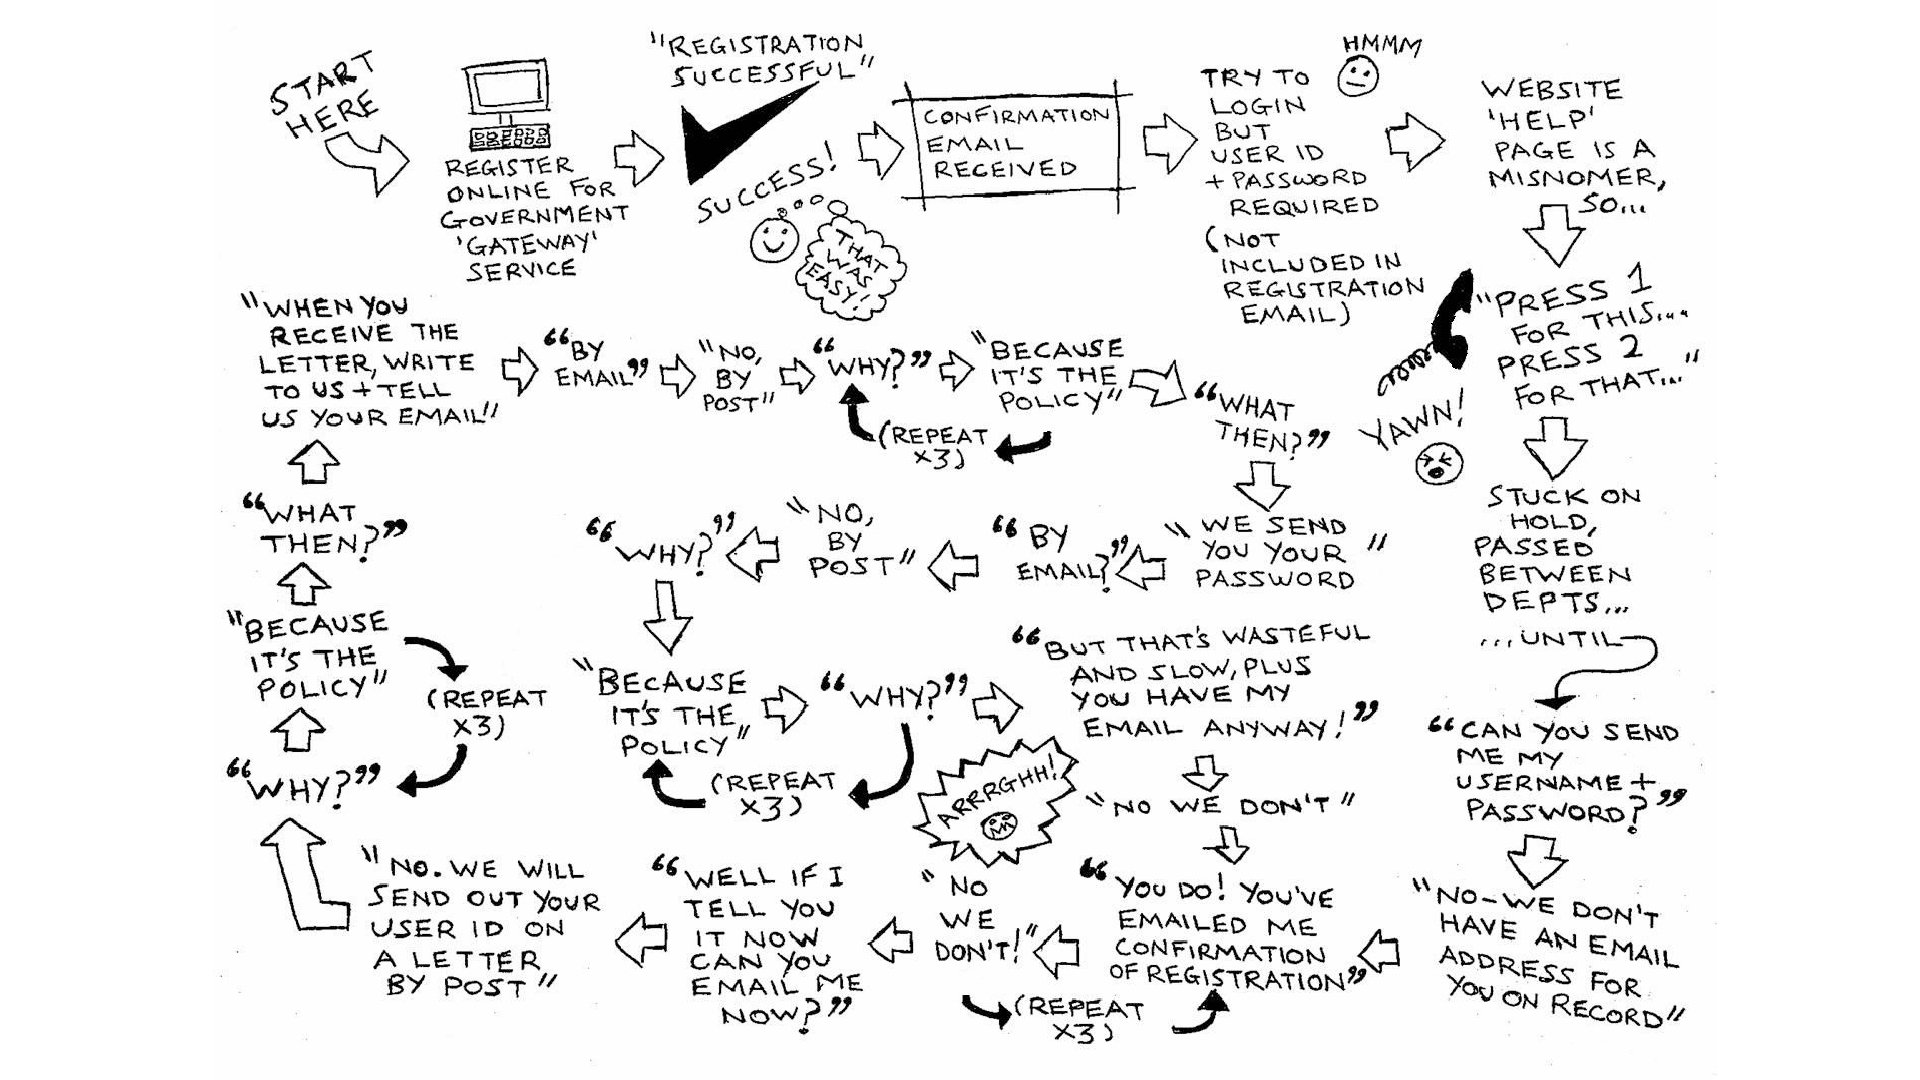 START
HERE
REGISTER
ONLINE FOR
GOVERNMENT
'GATEWAY'
SERVICE
"REGISTRATION
SUCCESSFUL"
SUCCESS!
THAT
WAS
EASY!
CONFIRMATION
EMAIL
RECEIVED
TRY TO
LOGIN
BUT
USER ID
+ PASSWORD
REQUIRED
(NOT
INCLUDED IN
REGISTRATION
EMAIL)
HMMM
WEBSITE
'HELP'
PAGE IS A
MISNOMER,
SO...
"PRESS 1
FOR THIS....
PRESS 2
FOR THAT..."
YAWN!
STUCK ON
HOLD,
PASSED
BETWEEN
DEPTS...
...UNTIL
"CAN YOU SEND
ME MY
USERNAME +
PASSWORD?"
"NO-WE DON'T
HAVE AN EMAIL
ADDRESS FOR
YOU ON RECORD"
"YOU DO! YOU'VE
EMAILED ME
CONFIRMATION
OF REGISTRATION"
"NO
WE
DON'T!"
(REPEAT
X3)
"WELL IF I
TELL YOU
IT NOW
CAN YOU
EMAIL ME
NOW?"
"NO. WE WILL
SEND OUT YOUR
USER ID ON
A LETTER
BY POST"
"WHY?"
"BECAUSE
IT'S THE
POLICY"
(REPEAT
X3)
"WHAT
THEN?"
"WHEN YOU
RECEIVE THE
LETTER, WRITE
TO US + TELL
US YOUR EMAIL"
"BY
EMAIL"
"NO,
BY
POST"
"WHY?"
"BECAUSE
IT'S THE
POLICY"
(REPEAT
X3)
"WHAT
THEN?"
"WE SEND
YOU YOUR"
PASSWORD
"BY
EMAIL?"
"NO,
BY
POST"
"WHY?"
"BECAUSE
IT'S THE
POLICY"
"WHY?"
(REPEAT
X3)
"BUT THAT'S WASTEFUL
AND SLOW, PLUS
YOU HAVE MY
EMAIL ANYWAY!"
"NO WE DON'T"
ARRRGHH!